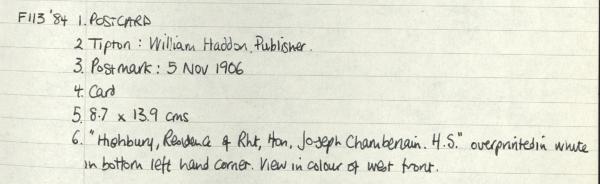 F113 '84 1. POSTCARD
2. Tipton : William Haddon, Publisher.
3. Postmark : 5 Nov 1906
4. Card
5. 8.7 x 13.9 cms
6. "Highbury, Residence of Rht, Hon, Joseph Chamberlain. H.S." overprinted in white
in bottom left hand corner. View in colour of west front.